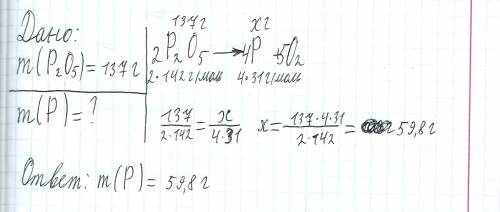 Дано:
m(P₂O₅)=137г
m(P)=?
137г хг
2P₂O₅→4P+5O₂
2·142г/моль 4·31г/моль
137/2·142=x/4·31 x=137·4·31/2·142=59,8г
Ответ: m(P)=59,8г